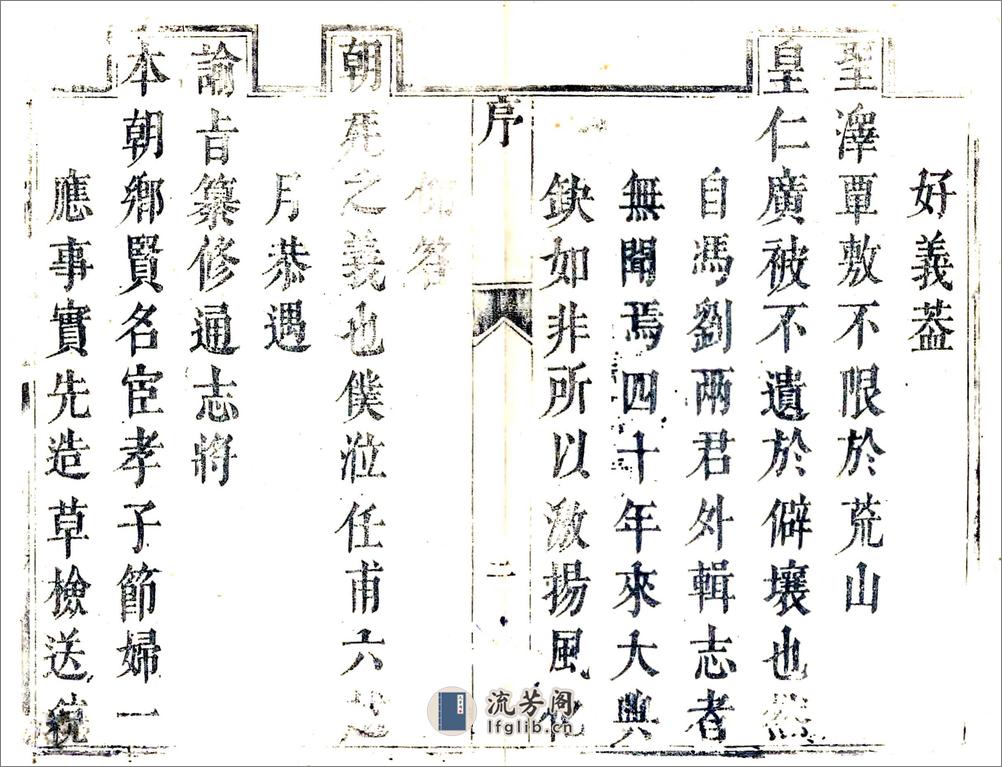 好義葢
聖澤覃敷不限於荒山
皇仁廣被不遺於僻壤也然
自馮劉兩君外輯志者
無聞焉四十年來大典
缺如非所以激揚風化
序
二
答
朝死之義也僕涖任甫六
月恭遇
諭旨纂修通志將
本朝鄉賢名宦孝子節婦一
應事實先造草檢送統
流芳阁
lfglib.cn